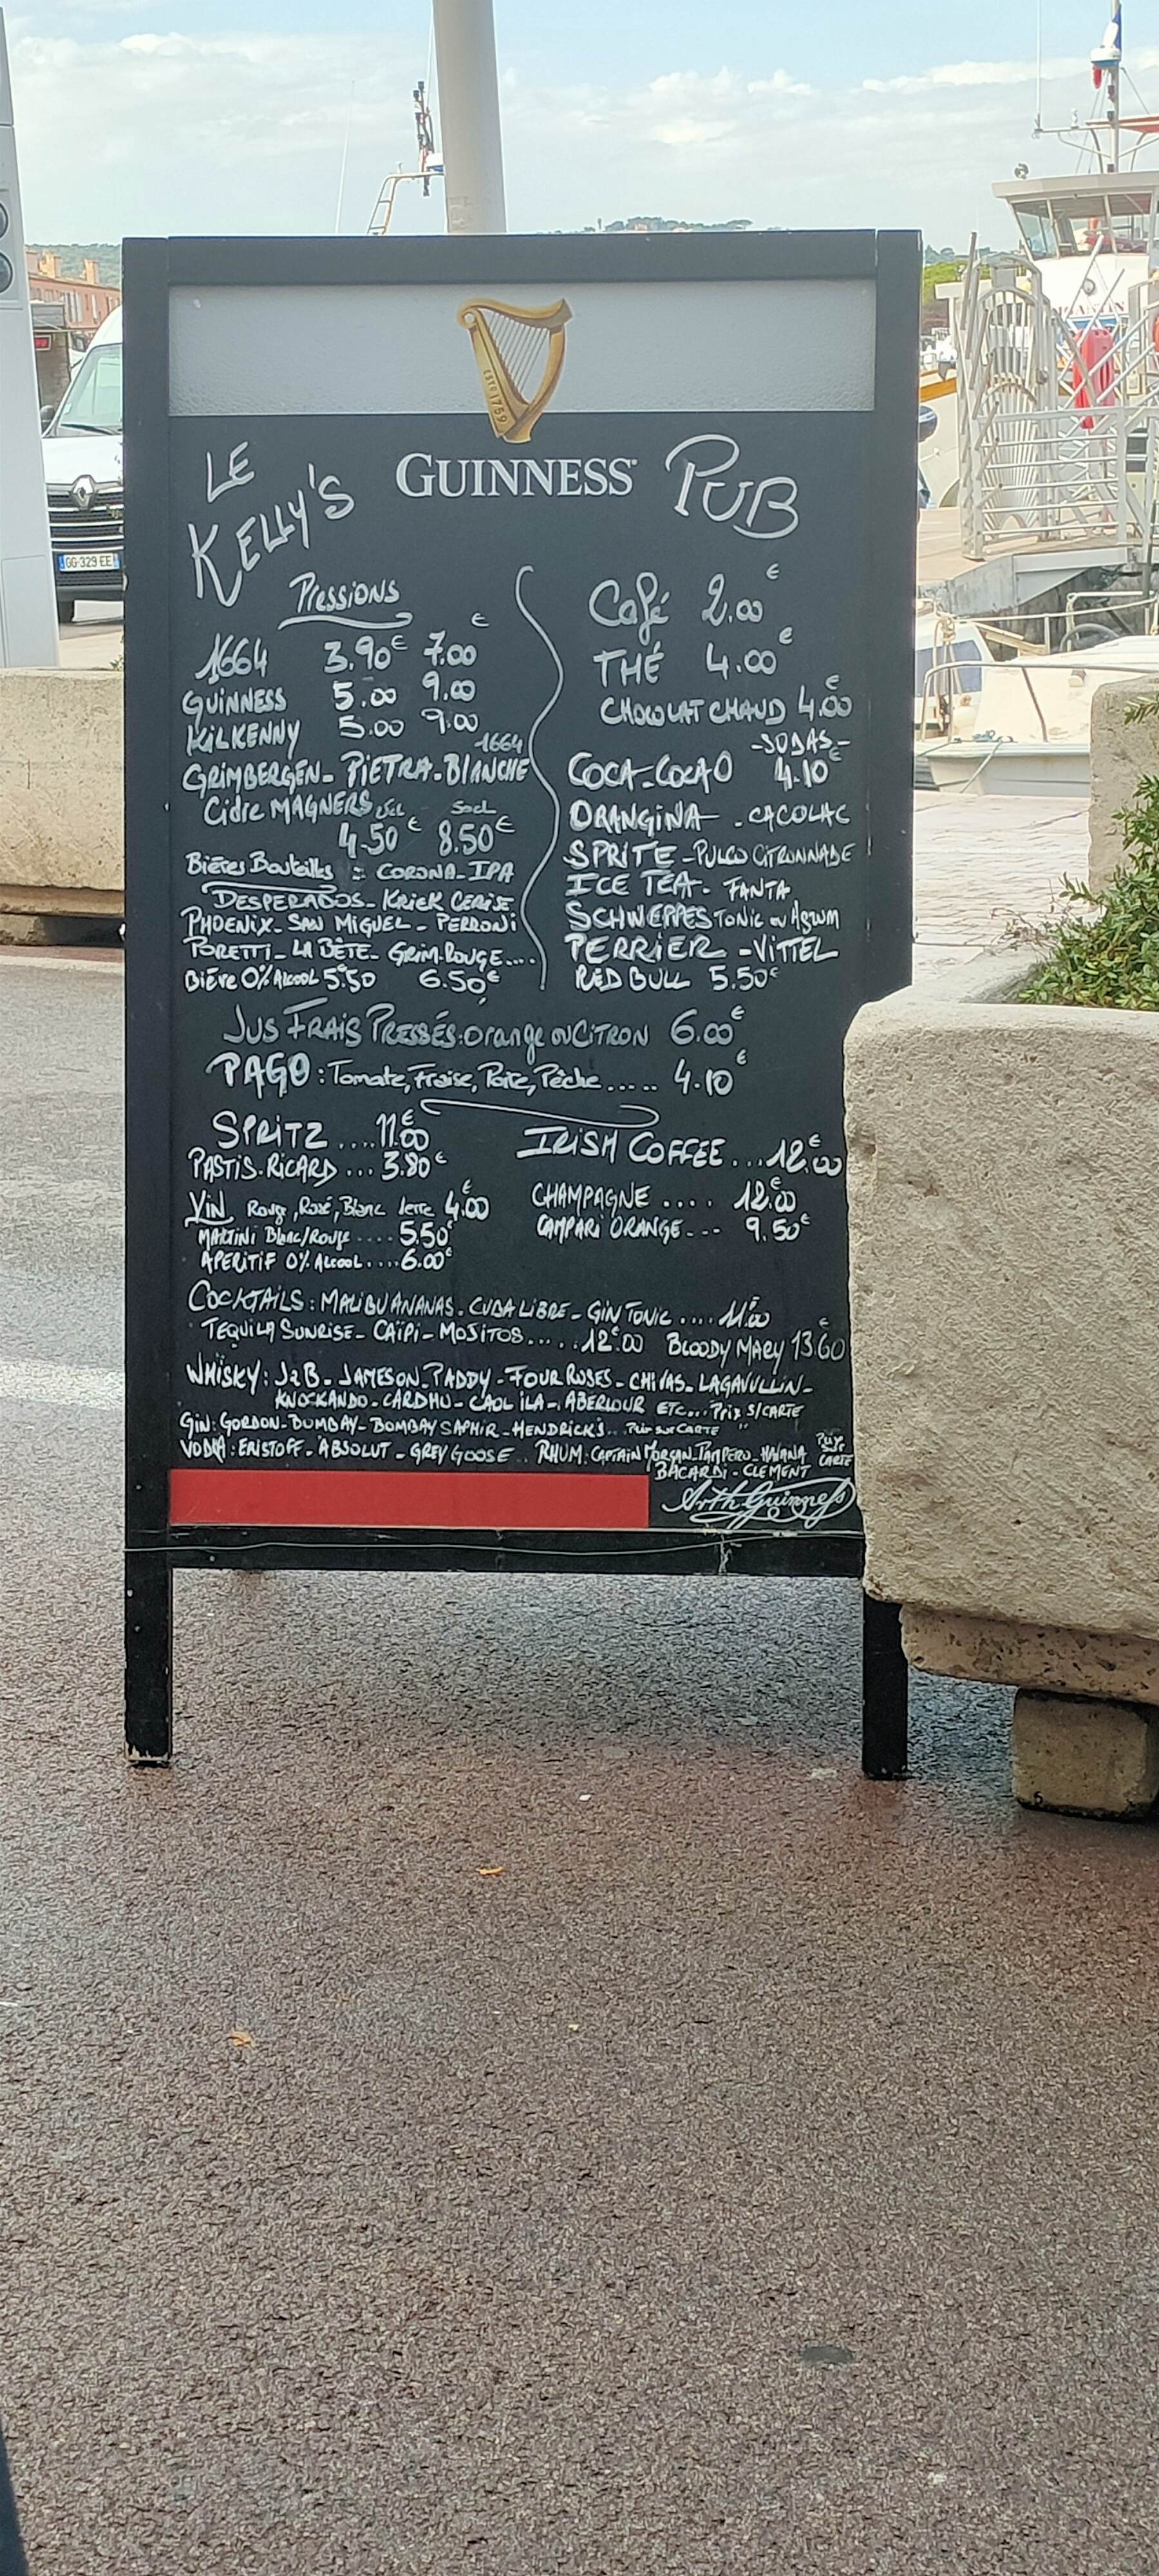 ESTD 1759
LE KELLY'S
GUINNESS
PUB
Pressions
€
1664 3.90€ 7.00
GUINNESS 5.00 9.00
KILKENNY 5.00 9.00
GRIMBERGEN - PIETRA - 1664 BLANCHE
Cidre MAGNERS
4.50€ 8.50€
Bières Bouteilles : CORONA - IPA
DESPERADOS - KRIEK CERISE
PHOENIX - SAN MIGUEL - PERRONI
PORETTI - LA BÊTE - GRIM.ROUGE....
BIÈRE 0% ALCOOL 5€50 6.50€
Café 2.00€
THÉ 4.00€
CHOCOLAT CHAUD 4.00€
-SODAS-
COCA-COCAO 4.10€
ORANGINA - CACOLAC
SPRITE - PULCO CITRONNADE
ICE TEA - FANTA
SCHWEPPES TONIC ou AGRUM
PERRIER - VITTEL
RED BULL 5.50€
JUS FRAIS PRESSÉS: Orange ou CITRON 6.00€
PAGO : Tomate, Fraise, Poire, Pêche..... 4.10€
SPRITZ ....11.00€
PASTIS-RICARD ... 3.80€
VIN Rouge, Rosé, Blanc 4.00€
MARTINI Blanc/Rouge .... 5.50€
APERITIF 0% Alcool ....6.00€
IRISH COFFEE ...12.00€
CHAMPAGNE .... 12.00€
CAMPARI ORANGE --- 9.50€
COCKTAILS : MALIBU ANANAS - CUBA LIBRE - GIN TONIC .... 11.00€
TEQUILA SUNRISE - CAÏPI - MOJITOS......12€00 BLOODY MARY 13€60
WHISKY : J2B - JAMESON - PADDY - FOUR ROSES - CHIVAS - LAGAVULLIN -
KNOCKANDO - CARDHU - CAOL ILA - ABERLOUR ETC... Prix S/CARTE
GIN: GORDON - BOMBAY - BOMBAY SAPHIR - HENDRICK'S.. Prix sur CARTE
VODKA : ERISTOFF - ABSOLUT - GREY GOOSE .. RHUM: CAPTAIN MORGAN - PAMPERO - HAVANA
BACARDI - CLEMENT
Prix sur CARTE
Arth Guinness
GG-329-EE